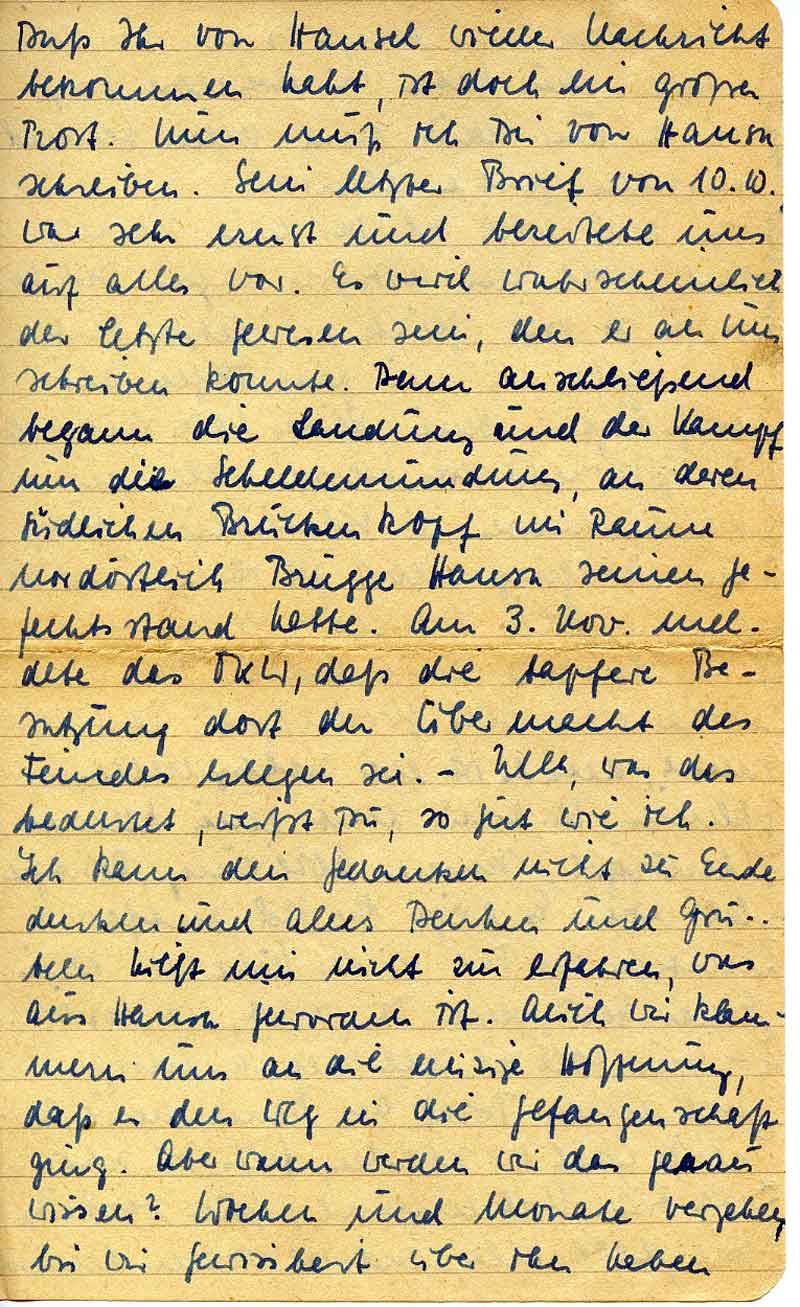 Daß Ihr von Hansel wieder Nachricht
bekommen habt, ist doch ein großer
Trost. Nun muß ich Dir von Hansa
schreiben. Sein letzter Brief von 10.10.
war sehr ernst und bereitete uns
auf alles vor. Es wird wahrscheinlich
der letzte gewesen sein, den er an uns
schreiben konnte. Denn anschließend
begann die Landung und der Kampf
um die Scheldemündung, an deren
südlichen Brückenkopf im Raum
nordöstlich Brügge Hansa seinen Ge-
fechtsstand hatte. Am 3. Nov. mel-
dete das OKW, daß die tapfere Be-
satzung dort der Übermacht des
Feindes erlegen sei. - Ulla, was das
bedeutet, weißt Du, so gut wie ich.
Ich kann den Gedanken nicht zu Ende
denken und alles Denken und Grü-
beln hilft mir nicht zu erfahren, was
aus Hansa geworden ist. Auch wir klam-
mern uns an die einzige Hoffnung,
daß er den Weg in die Gefangenschaft
ging. Aber wann werden wir das genau
wissen? Wochen und Monate vergehen,
bis wir Gewissheit über ihn haben